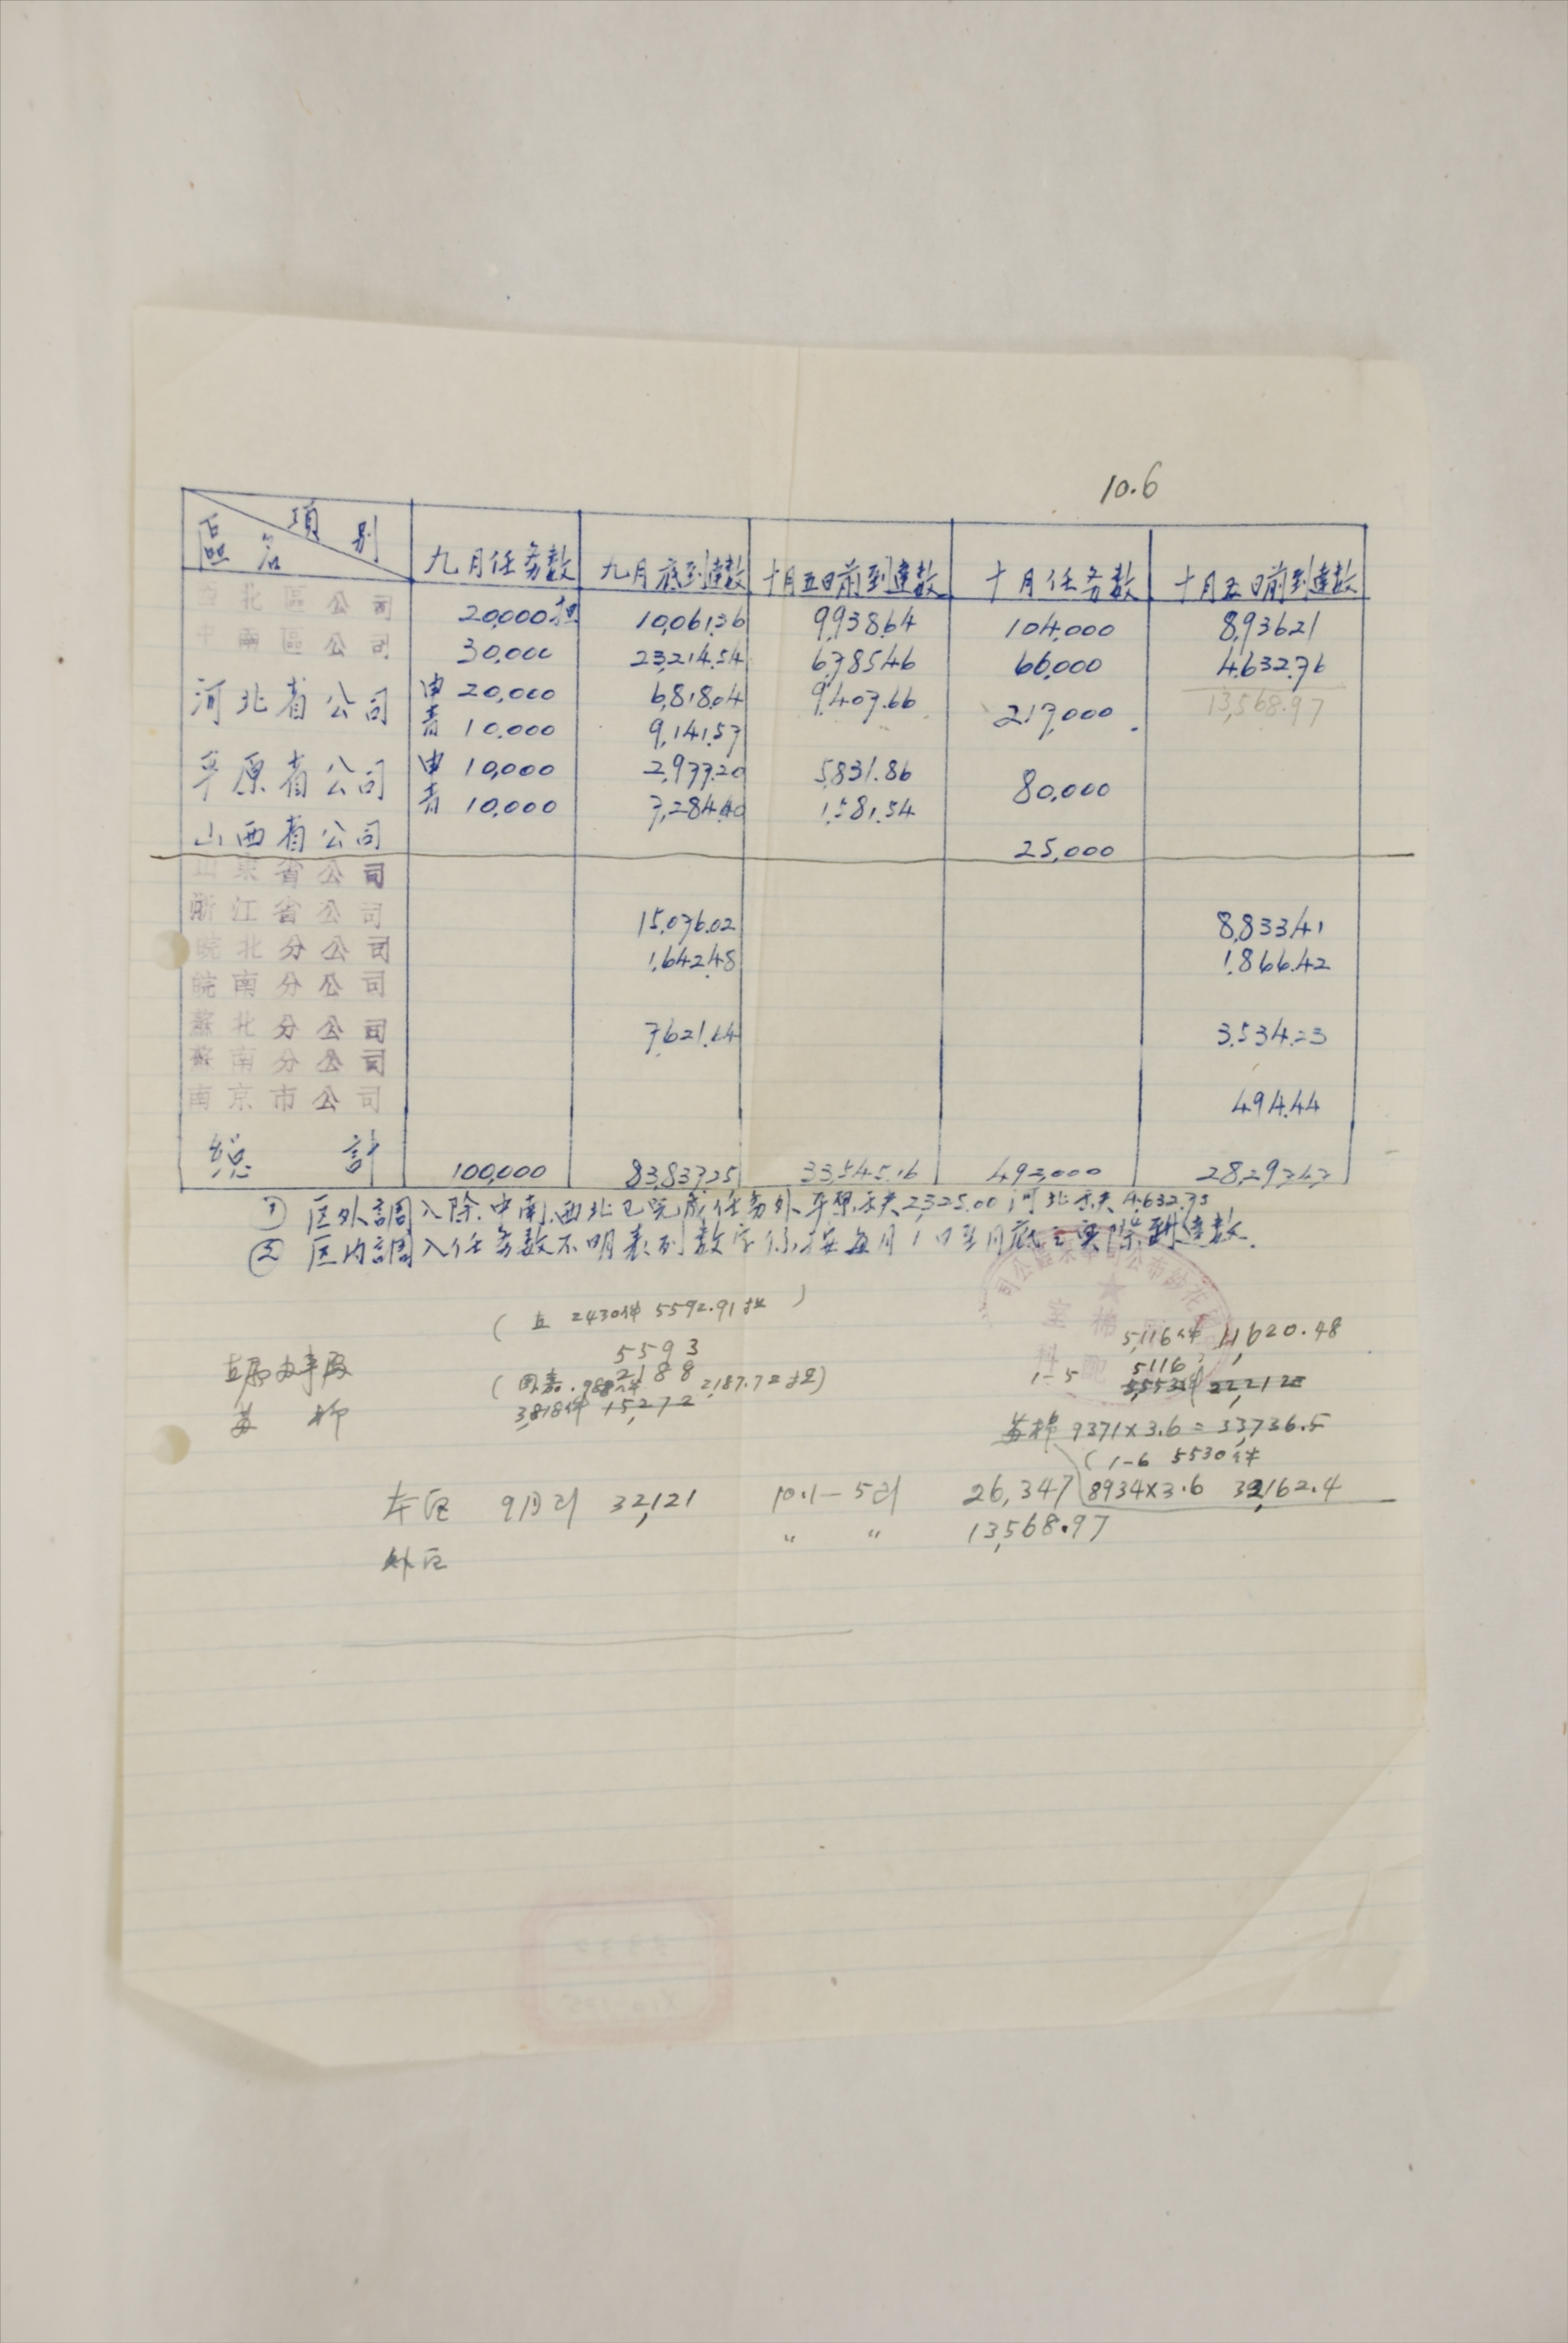 10.6
項別
區名 九月任务数 九月底到達数 十月五日前到達数 十月任务数 十月五日前到達数
西北區公司 20,000担 10,061.36 9,938.64 104,000 8,936.21
中南區公司 30,000 23,214.54 6,785.46 66,000 4,632.76
河北省公司 申 20,000 6,818.04 9,407.66 217,000 13,568.97
青 10,000 9,141.57
平原省公司 申 10,000 2,977.20 5,831.86 80,000
青 10,000 7,284.40 1,581.54
山西省公司 25,000
山東省公司
浙江省公司 15,076.02 8,833.41
皖北分公司 1,642.48 1,866.42
皖南分公司
蘇北分公司 7,621.64 3,534.23
蘇南分公司
南京市公司 494.44
総計 100,000 83,837.25 33,545.16 492,000 28,297.47
① 区外調入除中南.西北已完成任务外平原尚欠2,325.00河北尚欠4,632.75
② 区内調入任务数不明表列数字係按每月1日至月底之实际到達数.
( 2430件 5592.91担 )
5593
5,116件 11,620.48
直属办事处 2188 5116
( 988件 2187.72担) 1-5 5,553件 22,212
3,818件 15,272
苏棉 9371×3.6=33,736.5
( 1-6 5530件
本区 9月到 32,121 10.1—5到 26,347 8934×3.6 32,162.4
外区 〃 〃 13,568.97